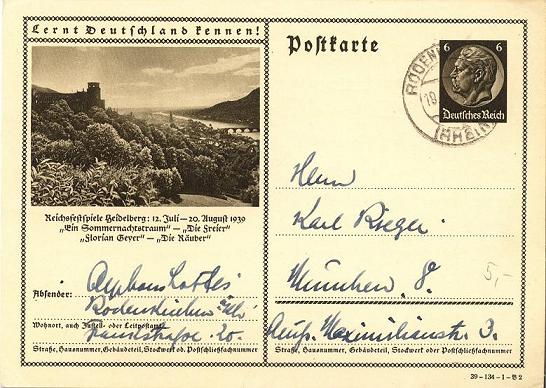 Lernt Deutschland kennen!
Postkarte
6 6
Deutsches Reich
RODEN
18
(RHEIN)
Reichsfestspiele Heidelberg: 12. Juli – 20. August 1939
„Ein Sommernachtstraum“ – „Die Freier“
„Florian Geyer“ – „Die Räuber“
Herrn
Karl Rieger
München 8.
5,-
Äuß. Maximilianstr. 3.
Absender: Alphons Lottes
Rodenkirchen
Wohnort, auch Zustell- oder Leitpostamt
Frankstraße 20.
Straße, Hausnummer, Gebäudeteil, Stockwerk od. Postschließfachnummer
Straße, Hausnummer, Gebäudeteil, Stockwerk oder Postschließfachnummer
39 – 134 – 1 – B 2